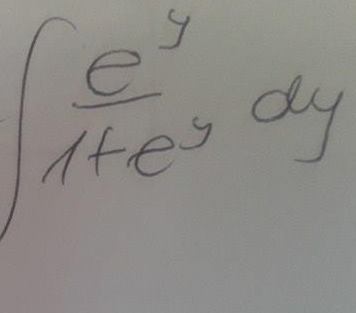 ∫ e^y / (1+e^y) dy